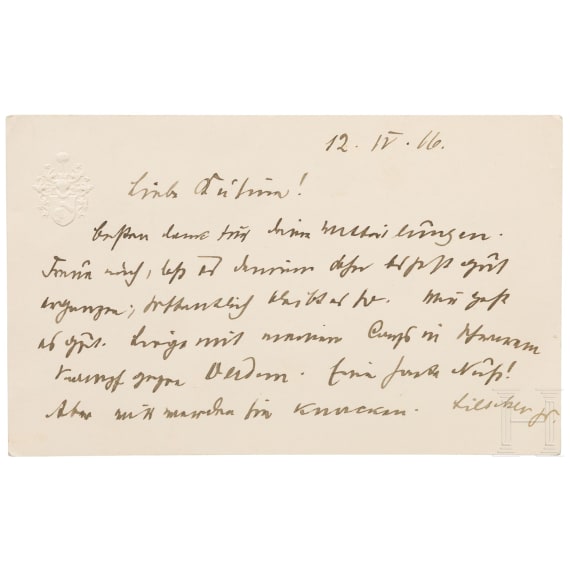 12. IV. 16.
Liebe Cusine!
besten dank für deine Mitteilungen.
Freue mich, daß es deinem gut
ergangen; hoffentlich bleibt es so. Mir geht
es gut. Liege mit meinem Corps in schwerem
Kampf gegen Verdun. Eine harte Nuß!
Aber wir werden sie knacken.
H